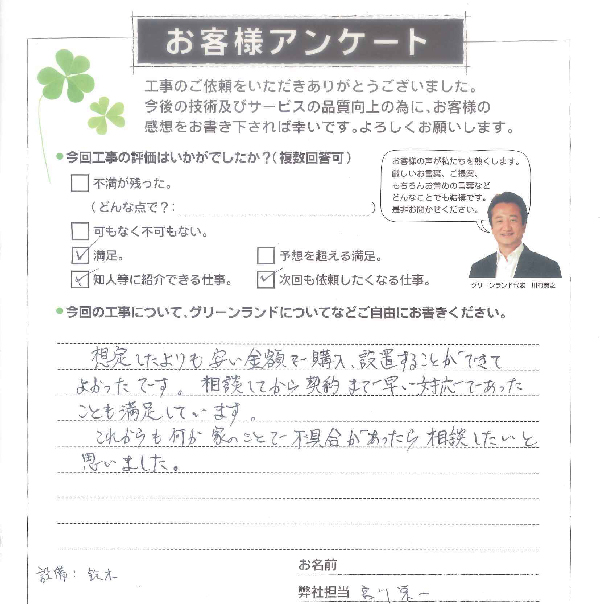 お客様アンケート
工事のご依頼をいただきありがとうございました。
今後の技術及びサービスの品質向上の為に、お客様の
感想をお書き下されば幸いです。よろしくお願いします。
●今回工事の評価はいかがでしたか?(複数回答可)
不満が残った。
(どんな点で?: )
可もなく不可もない。
満足。
予想を超える満足。
知人等に紹介できる仕事。
次回も依頼したくなる仕事。
お客様の声が私たちを熱くします。
厳しいお言葉、ご提案、
もちろんお褒めの言葉など
どんなことでも結構です。
是非お聞かせください。
グリーンランド代表
●今回の工事について、グリーンランドについてなどご自由にお書きください。
想定したよりも安い金額で購入、設置することができて
よかったです。相談してから契約まで早い対応であった
ことも満足しています。
これからも何か家のことで不具合があったら相談したいと
思いました。
お名前
設備: 鈴木
弊社担当